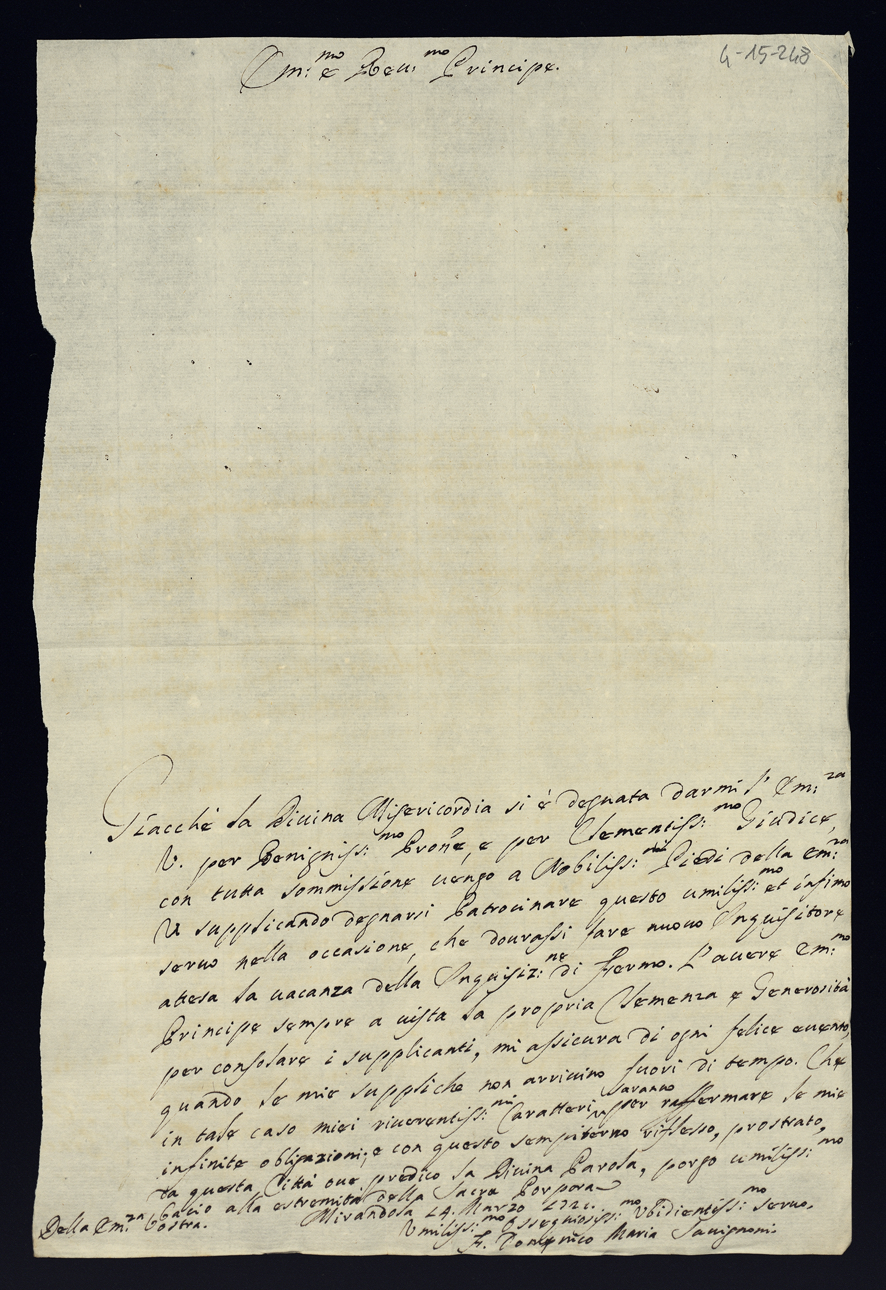 4-15-248
Em:mo e Reu:mo Principe.
Giacche la Diuina Misericordia si è degnata darmi l' Em:za
V. per Benigniss:mo Prone, e per Clementiss:mo Giudice,
con tutta sommissione uengo a Nobiliss:mi Piedi della Em:za
V supplicando degnarsi Patrocinare questo umiliss:mo et infimo
seruo nella occasione, che dourassi fare nuouo Inquisitore
attesa la uacanza della Inquisiz:ne di Fermo. L'auere Em:mo
Principe sempre a uista la propria Clemenza e Generosità
per consolare i supplicanti, mi assicura di ogni felice euento,
quando le mie suppliche non arriuino fuori di tempo. Che
in tale caso miei riuerentiss:mi Caratteri saranno per raffermare le mie
infinite obligazioni; e con questo sempiterno riflesso, prostrato,
da questa Città oue predico la Diuina Parola, porgo umiliss:mo
bacio alla estremità della Sacra Porpora
Mirandola 24. Marzo
Della Em:za Vostra.
Vmiliss:mo Ossequiosiss:mo Vbidientiss:mo seruo.
F. Domenico Maria Sauignoni